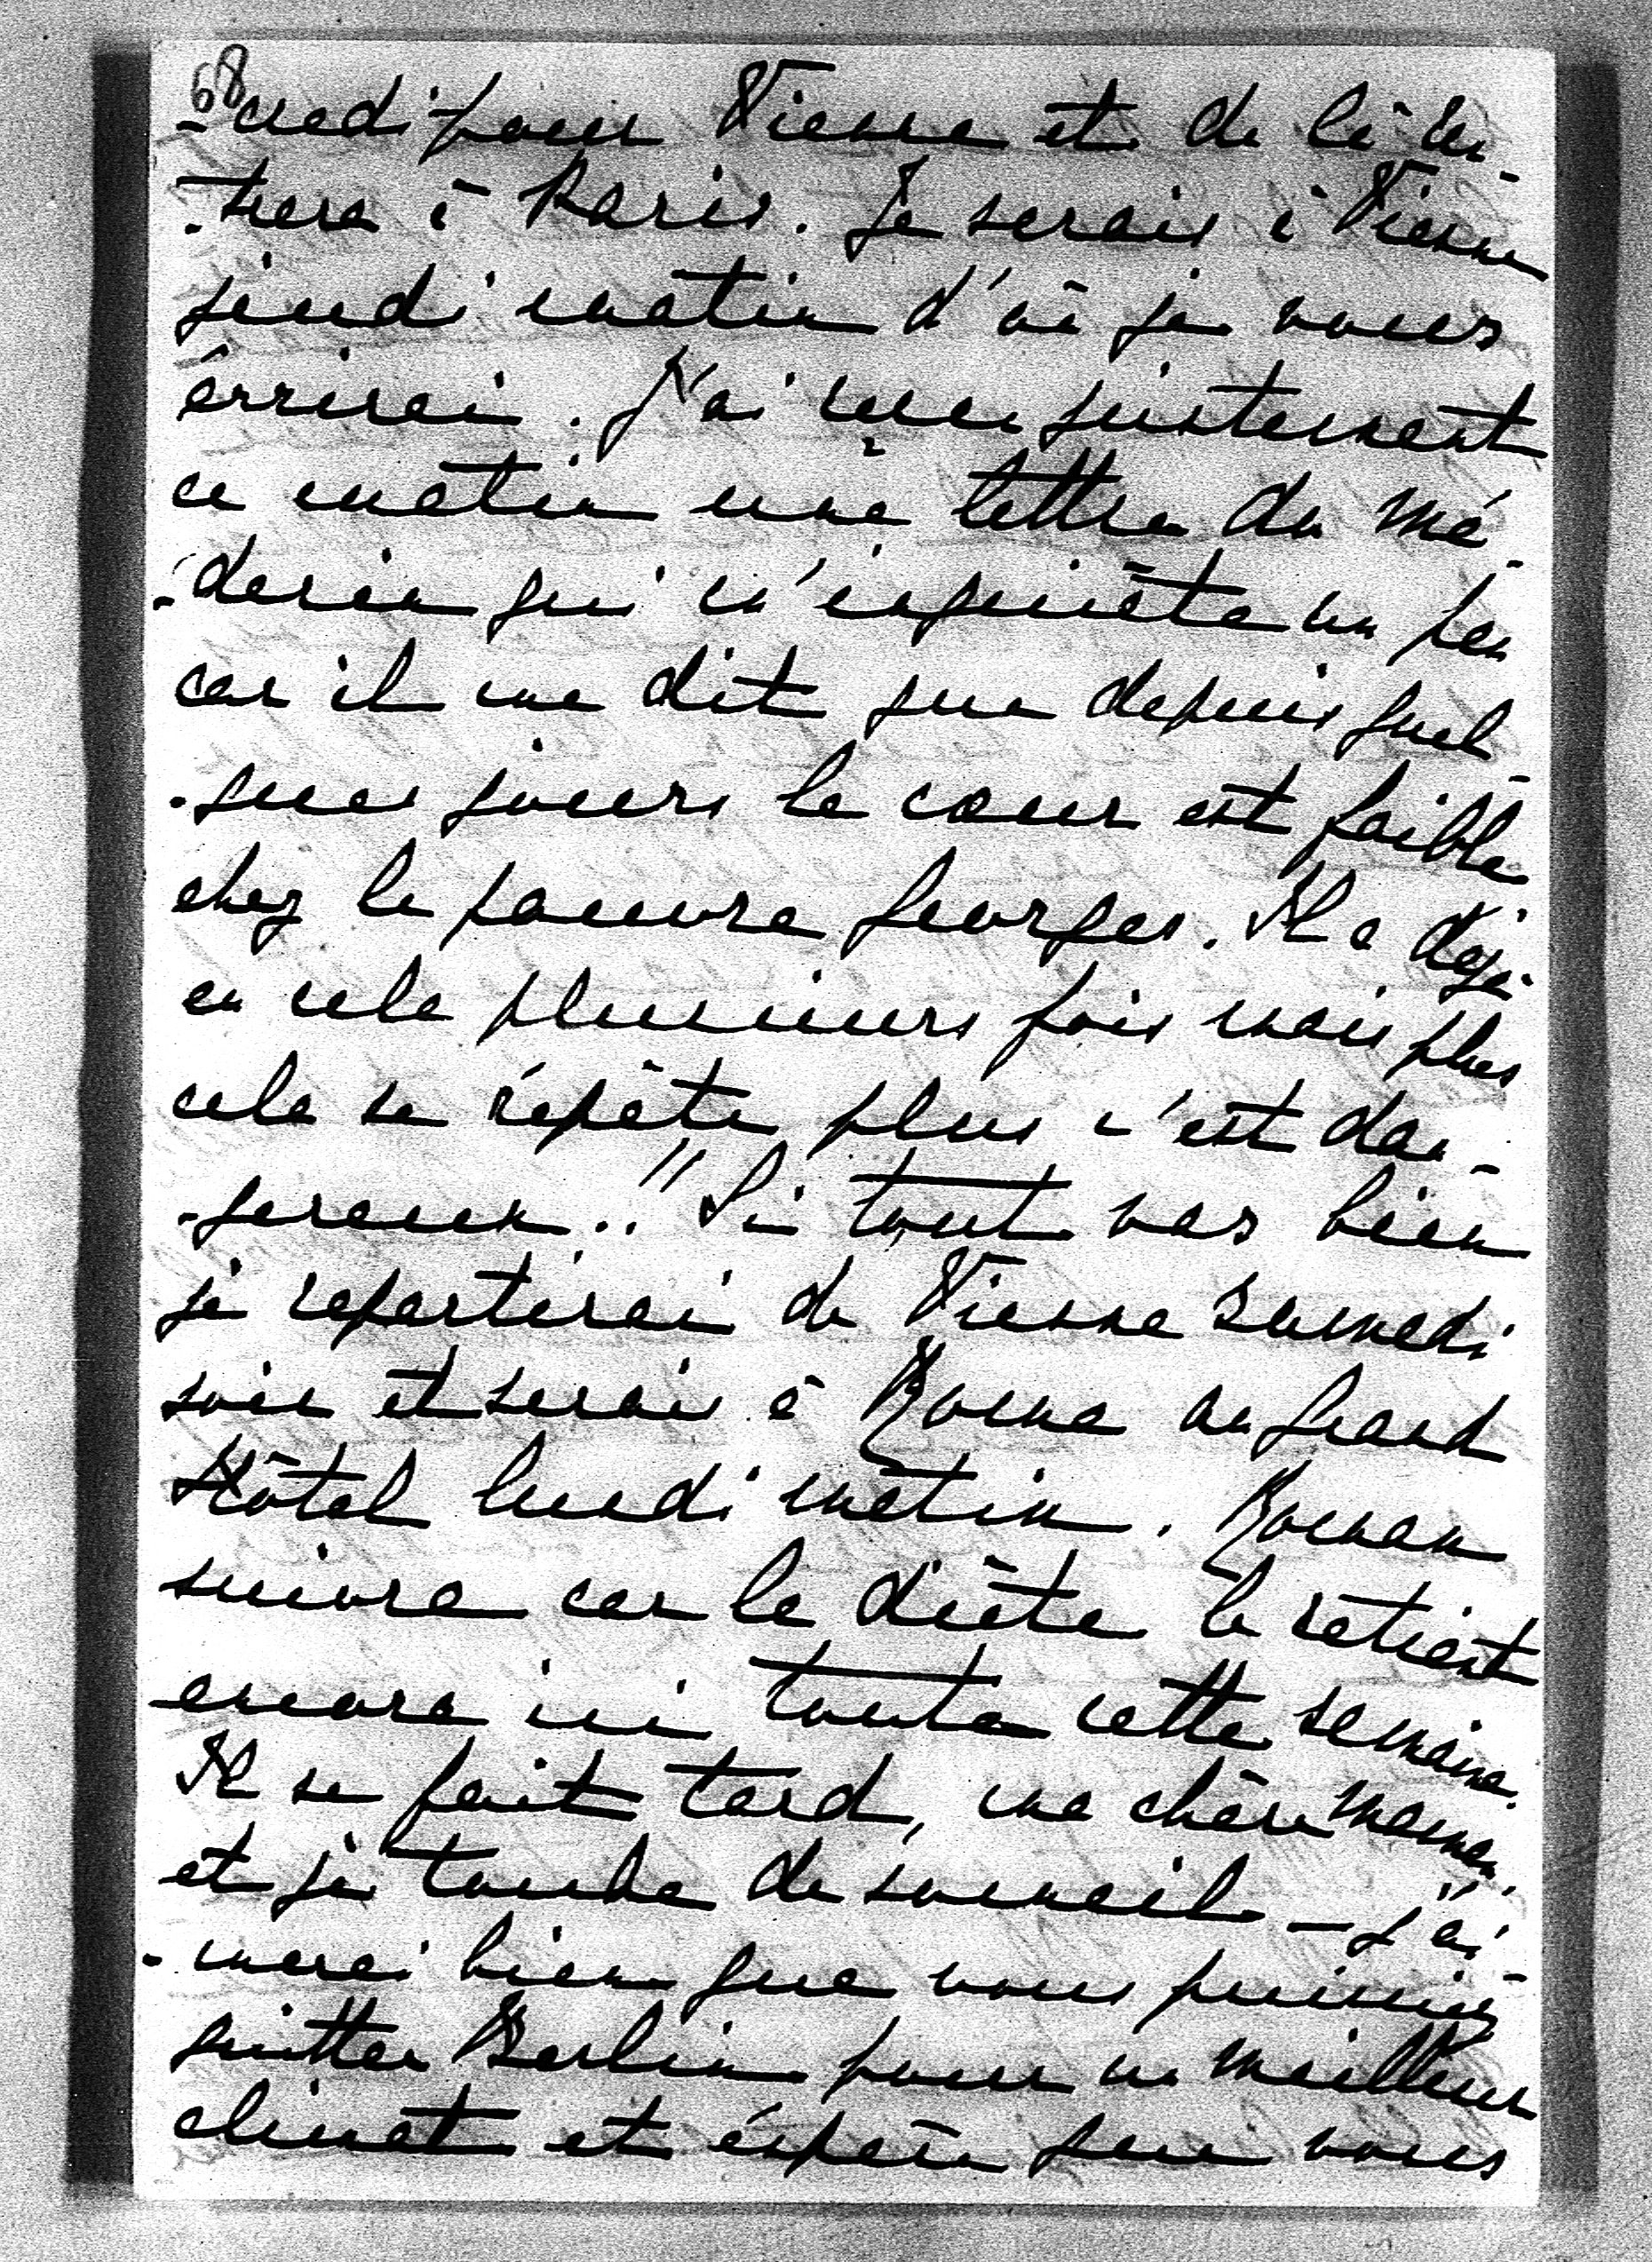 68
-credi pour Vienne et de là ren-
-trera à Paris. Je serais à Vienne
jeudi matin d'où je vous
écrirai. J'ai reçu justement
ce matin une lettre du mé-
-decin qui m'inquiète un peu
car il me dit que depuis quel-
-ques jours le cœur est faible
chez le pauvre Georges. Il a déjà
eu cela plusieurs fois mais plus
cela se répète plus c'est dan-
-gereux..!! Si tout vas bien
je repartirai de Vienne samedi
soir et serais à Rome au Grand
Hôtel lundi matin. Roman
suivra car la diète le retient
encore ici toute cette semaine.
Il se fait tard, ma chère maman,
et je tombe de sommeil – J'ai-
-merai bien que vous puissiez
quitter Berlin pour un meilleur
climat et éspère que vous